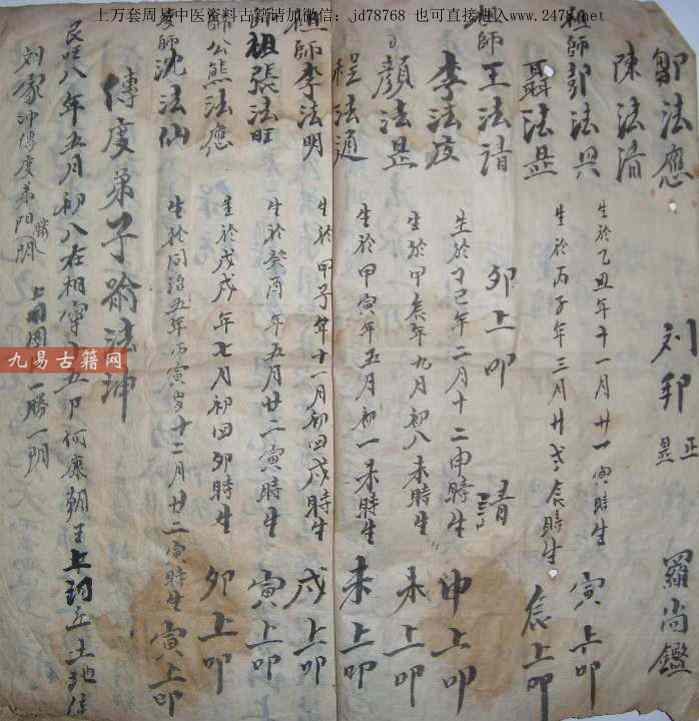 上万套周易中医资料古籍请加微信：jd78768 也可直接进入www.2478.net
鄒法應 刘邦正 羅尚鑑
陳法清 昱
祖師郭法興 生於乙丑年十一月廿一寅時生 寅上叩
聶法昰 生於丙子年三月廿 辰時生 辰上叩
祖師王法清 卯上叩 請
李法度 生於丁巳年二月十二申時生 申上叩
顏法昰 生於甲 年九月初八未時生 未上叩
程法通 生於甲寅年五月初一未時生 未上叩
祖師李法明 生於甲子年十一月初四戌時生 戌上叩
師祖張法旺 生於癸酉年五月廿二寅時生 寅上叩
師公熊法應 生於戊戌年七月初四卯時生 卯上叩
師沈法仙 生於同治五年丙寅歲十二月廿二寅時生 寅上叩
傳度弟子喻法坤
民國八年五月初八在相 五 何 廟王上 丘土地
刘家冲傳度弟 一勝一 
九易古籍网